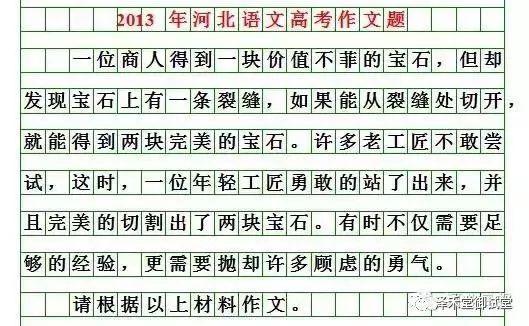 2013 年河北语文高考作文题
一位商人得到一块价值不菲的宝石，但却
发现宝石上有一条裂缝，如果能从裂缝处切开，
就能得到两块完美的宝石。许多老工匠不敢尝
试，这时，一位年轻工匠勇敢的站了出来，并
且完美的切割出了两块宝石。有时不仅需要足
够的经验，更需要抛却许多顾虑的勇气。
请根据以上材料作文。
泽禾堂御试堂